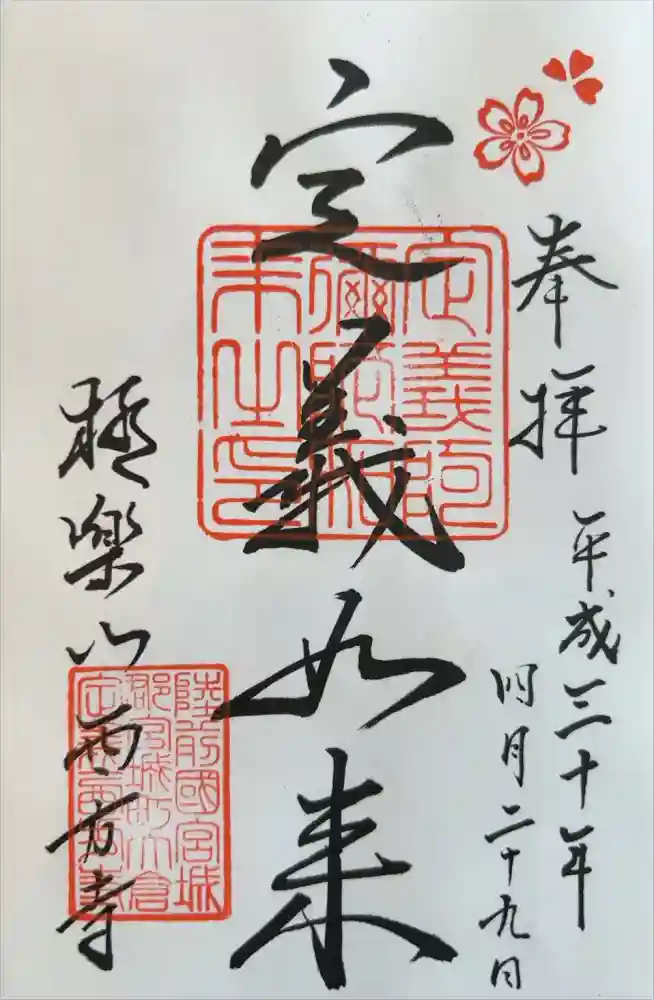 奉拝
平成三十年
四月二十九日
定義如来
定義阿
彌陀如
来之印
極楽山西方寺
陸前國宮城
郡宮城町大倉
定義西方寺